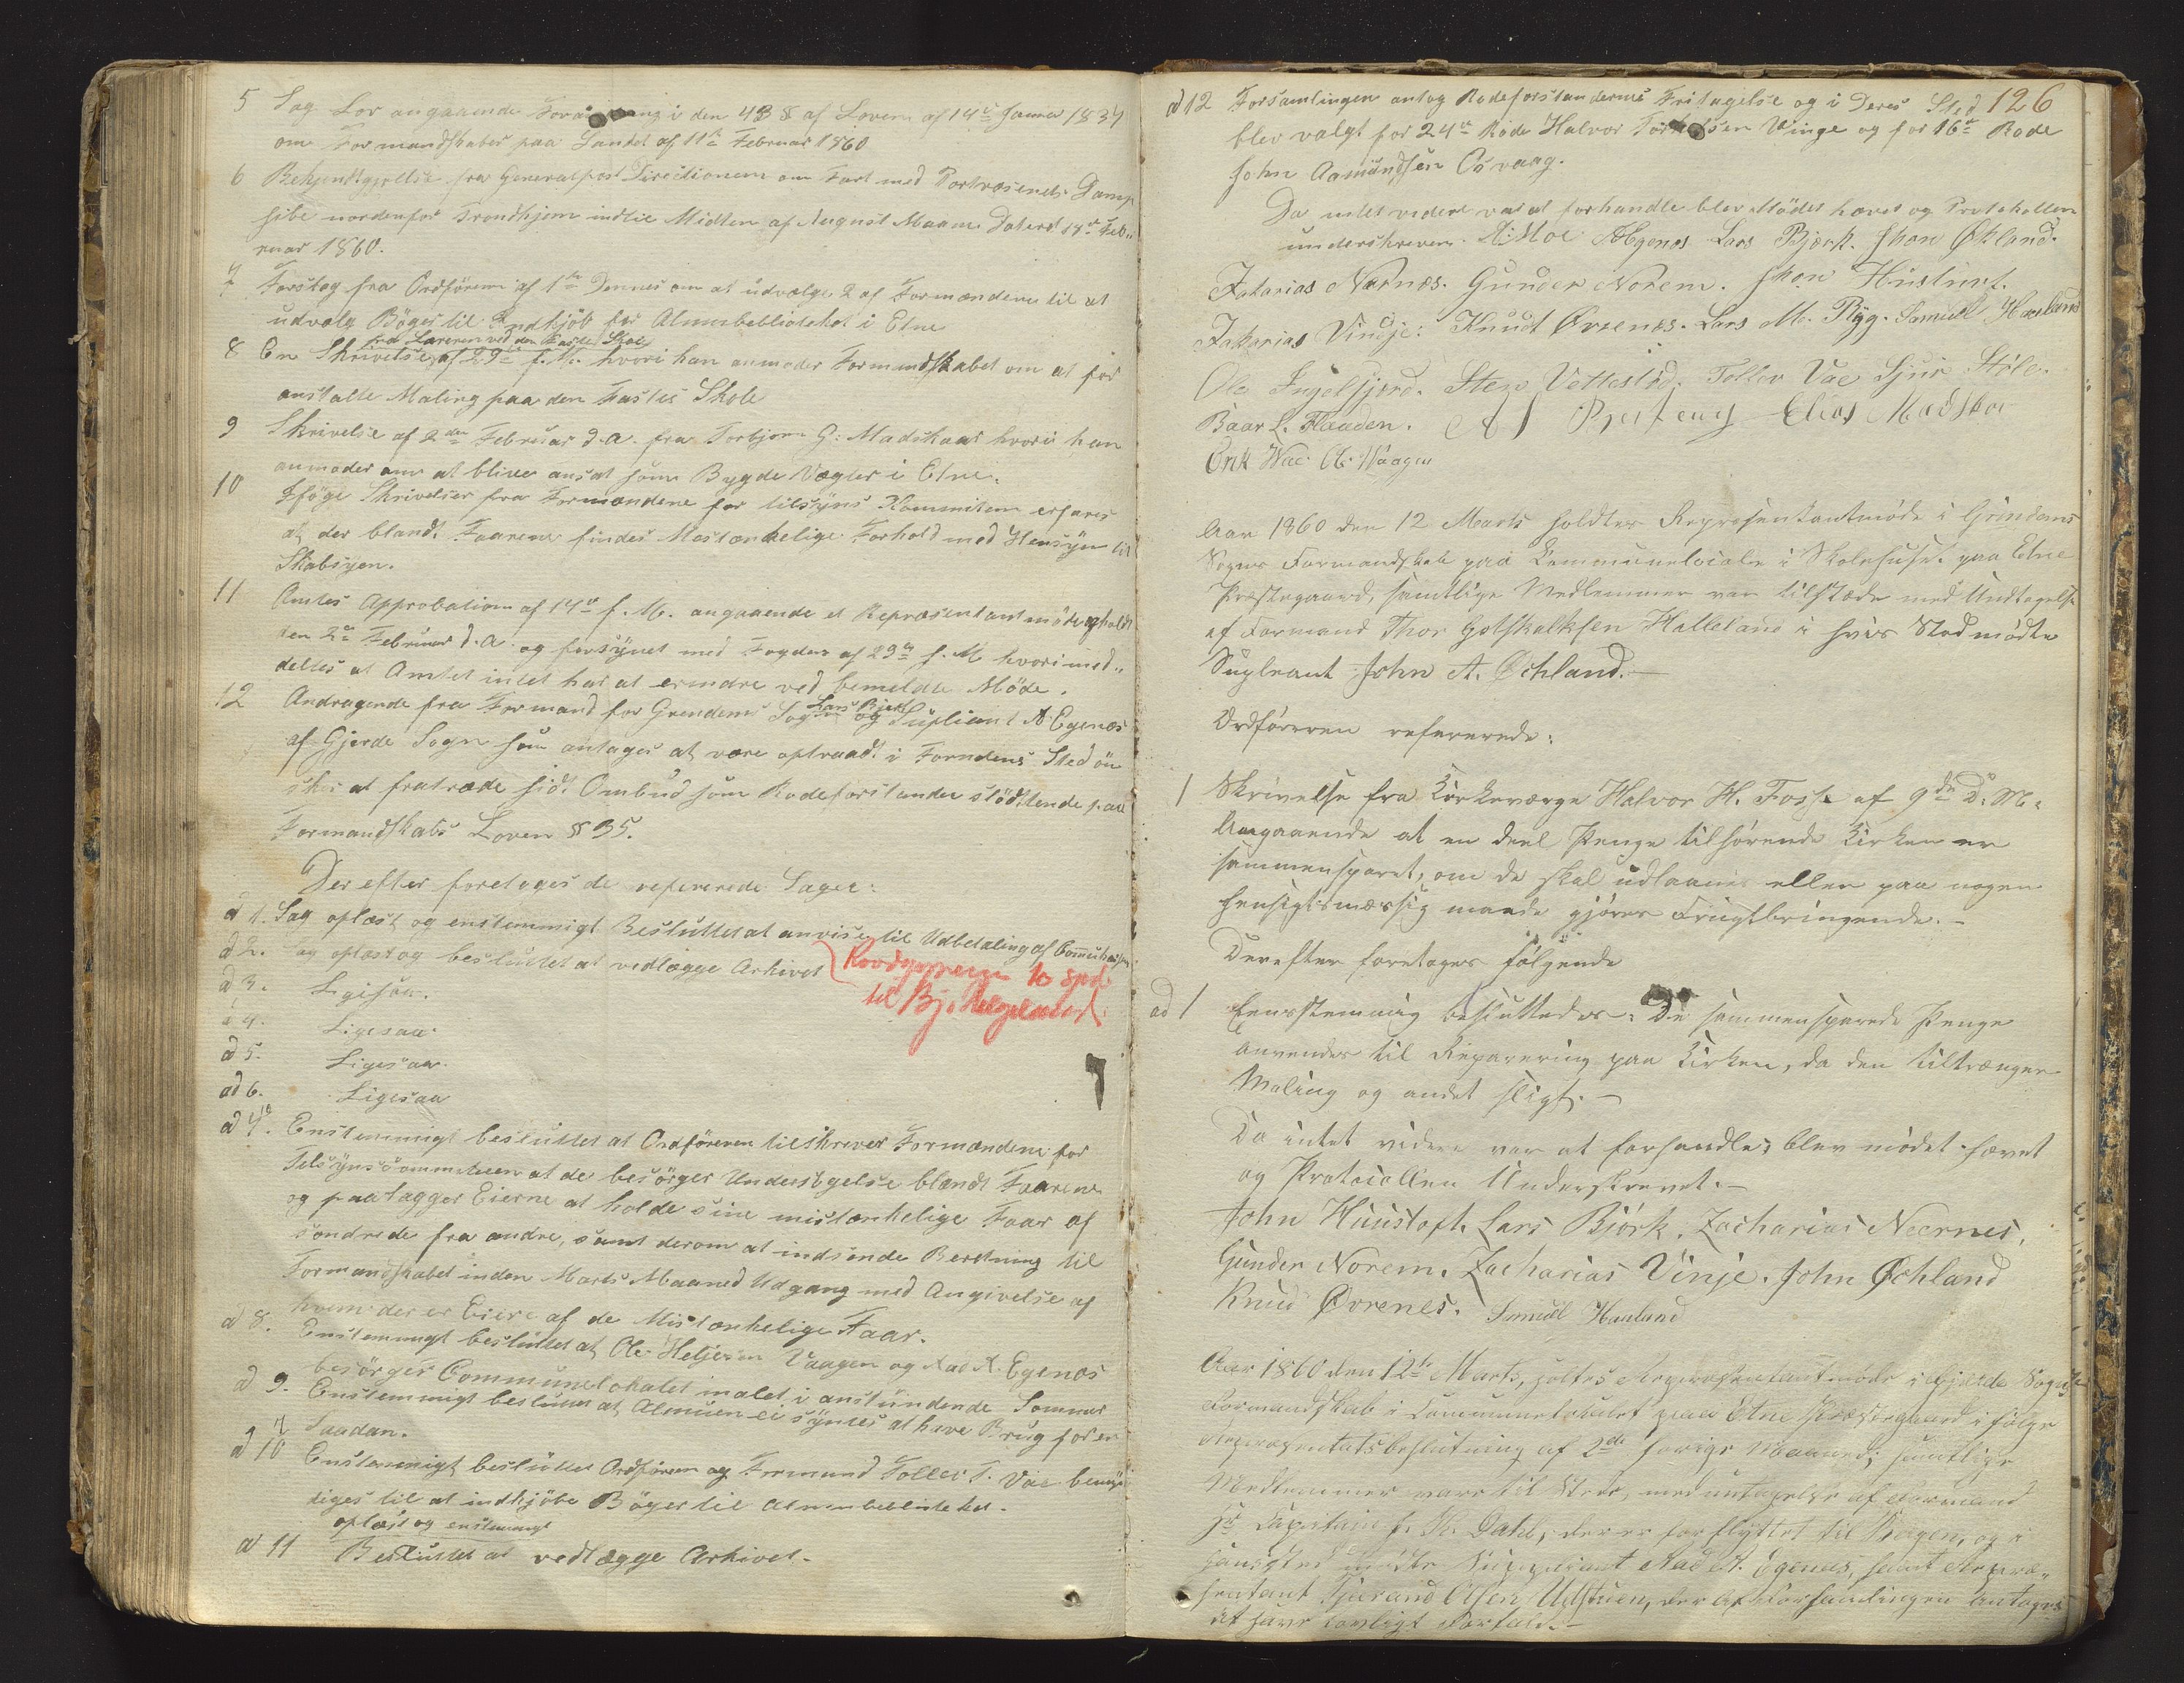 5 Sag Lov angaaende Forandring i den 43 § af Loven af 14de Januar 1837
om Formandskaber paa Landet af 11te Februar 1860
6 Bekjendtgjørelse fra Generalpost Directionen om Fart med Postvæsenets Damp
sibe nordenfor Trondhjem indtil Midten af August Maaned Dateret 14de Feb„
ruar 1860.
7 Forslag fra Ordføreren af 1ste Dennes om at udvælge 2 af Formændene til at
udvælg Bøger til Indkjöb for Almuebibliotheket i Etne
fra Læreren ved den Faste Skole
8 En Skrivelse af 29de f. M. hvori han anmoder Formandskabet om at faa
anstalte Maling paa den Fastes Skole
9 Skrivelse af 2den Februar d.a. fra Torbjörn G. Madskaar hvori han
anmoder om at blive ansat som Bygde Vægter i Etne.
10 Ifölge Skrivelser fra Formændene for tilsyns Kommiteen erfares
at der blandt Faarene findes Mistænkelige Forhold med Hensyn til
Skabsygen.
11 Amtes Approbation af 14de f. M. angaaende et Repræsentantmöde afholdt
den 2de Februar d.a. og forsynet med Fogdens af 29de f. M hvori med„
deltes at Amtet intet har at erindre ved bemeldte Möde.
Lars Bjørk
12 Andragende fra Formand for Grindens Sogn og Suplient A. Egenæs
af Gjerde Sogn som antages at være optraadt i Formdens Sted ön
skes at fratræde sidt Ombud som Rodeforstander stöttende paa
Formandskabs Loven § 35.
Der efter foretoges de refererede Sager:
ad 1. Sag oplæst og enstemmigt Besluttet at anvise til Udbetaling af Communekassen
ad 2. Sag oplæst og besluttet at vedlægge Arhivet
10 Spd.
til Bj.
ad 3. Ligesaa.
ad 4. Ligesaa.
ad 5. Ligesaa.
ad 6. Ligesaa
ad 7. 10 Enstemmigt besluttet at Ordföreren tilskriver Formændene for
tilsynscommiteen at de besörger Undersögelse blandt Faarene
og paalægger Eierne at holde sine mistænkelige Faar af
söndrede fra andre, samt derom at indsende Beretning til
Formandskabet inden Marts Maaned Udgang med Angivelse af
hvem der er Eiere af de Mistænkelige Faar.
ad 8. Enstemmigt besluttet at Ole Heljesen Vaagen og Aad A. Egenæs
besörger Communelokalet malet i anstundende Sommer
ad 9. Enstemmigt besluttet at Almuen ei syntes at have Brug for en
Saadan.
7
ad 10 Enstemmigt besluttet Ordföreren og Formand Tollev T. Vae bemyn
diges til at indkjöbe Böger til Almuebibliotheket.
oplæst og enstemmigt
ad 11 Besluttet at vedlægge Arhivet.
126
ad 12 Forsamlingen antog Rodeforstandernes Fritagelse og i Deres Sted
blev valgt for 24de Rode Halvor Torkelsen Vinge og for 16de Rode
John Aamundsen Osvaag.
Da intet videre var at forhandle blev Mödet hævet og Protokollen
underskreven. A. Egenæs Lars Bjørk. Jhon Økland.
Zakarias Nærnæs. Gunder Norem. Jhon Hustuft.
Zakarias Vindje: Knudt Øvrenæs. Lars M. Rÿg. Samuel Haaland
Ole Ingelfjord. Sten Vettestöd. Tollev Vae Sjur Støle.
Baar L. Flaaden. Elias Madskar
Erik Wae. O. Vaagen
Aar 1860 den 12 Marts holdtes Repræsentantmöde i Grindems
Sogns Formandskab paa Communelocalen i Skolehuset paa Etne
Præstegaard, samtlige Medlemmer var tilstæde med Undtagelse
af Formand Thor Gotskalksen Halleland i hvis Sted mödte
Supleant John A. Øchland.—
Ordföreren refererede:
1 Skrivelse fra Kirkeværge Halvor H. Fosse af 9de D. M.
Angaaende at en deel Penge tilhörende Kirken er
sammensparet, om de skal udlaanes eller paa nogen
hensigtsmæssig maade gjöres Frugtbringende.—
Derefter foretoges fölgende
ad 1 Eensstemmig besluttedes: De sammensparede Penge
anvendes til Reparering paa Kirken, da den tiltrænger
Maling og andet sligt.—
Da intet videre var at forhandle, blev mödet hævet
og Protocollen Underskrevet.—
John Huustoft. Lars Björk. Zacharias Neernes.
Gunder Norem. Zacharias Vinje. John Øchland
Knud Øvrenes. Samuel Haaland
Aar 1860 den 12te Marts, holtes Repræsentantmöde i Gjærde Sogns
Formandskab i Communelokalet paa Etne Præstegaard i fölge
Repræsentatsbeslutning af 2de forrige Maaned; samtlige
Medlemmer vare til Stede, med untagelse af Formand
Hr Capitain J. Dahl, der er forflyttet til Skogen, og i
hans Sted mødte Suppleant Aad A. Egenæs, samt Repræ„
sentant Sjurand Olsen Udstuen, der af Forsamlingen antoges
at have lovligt Forfald.—